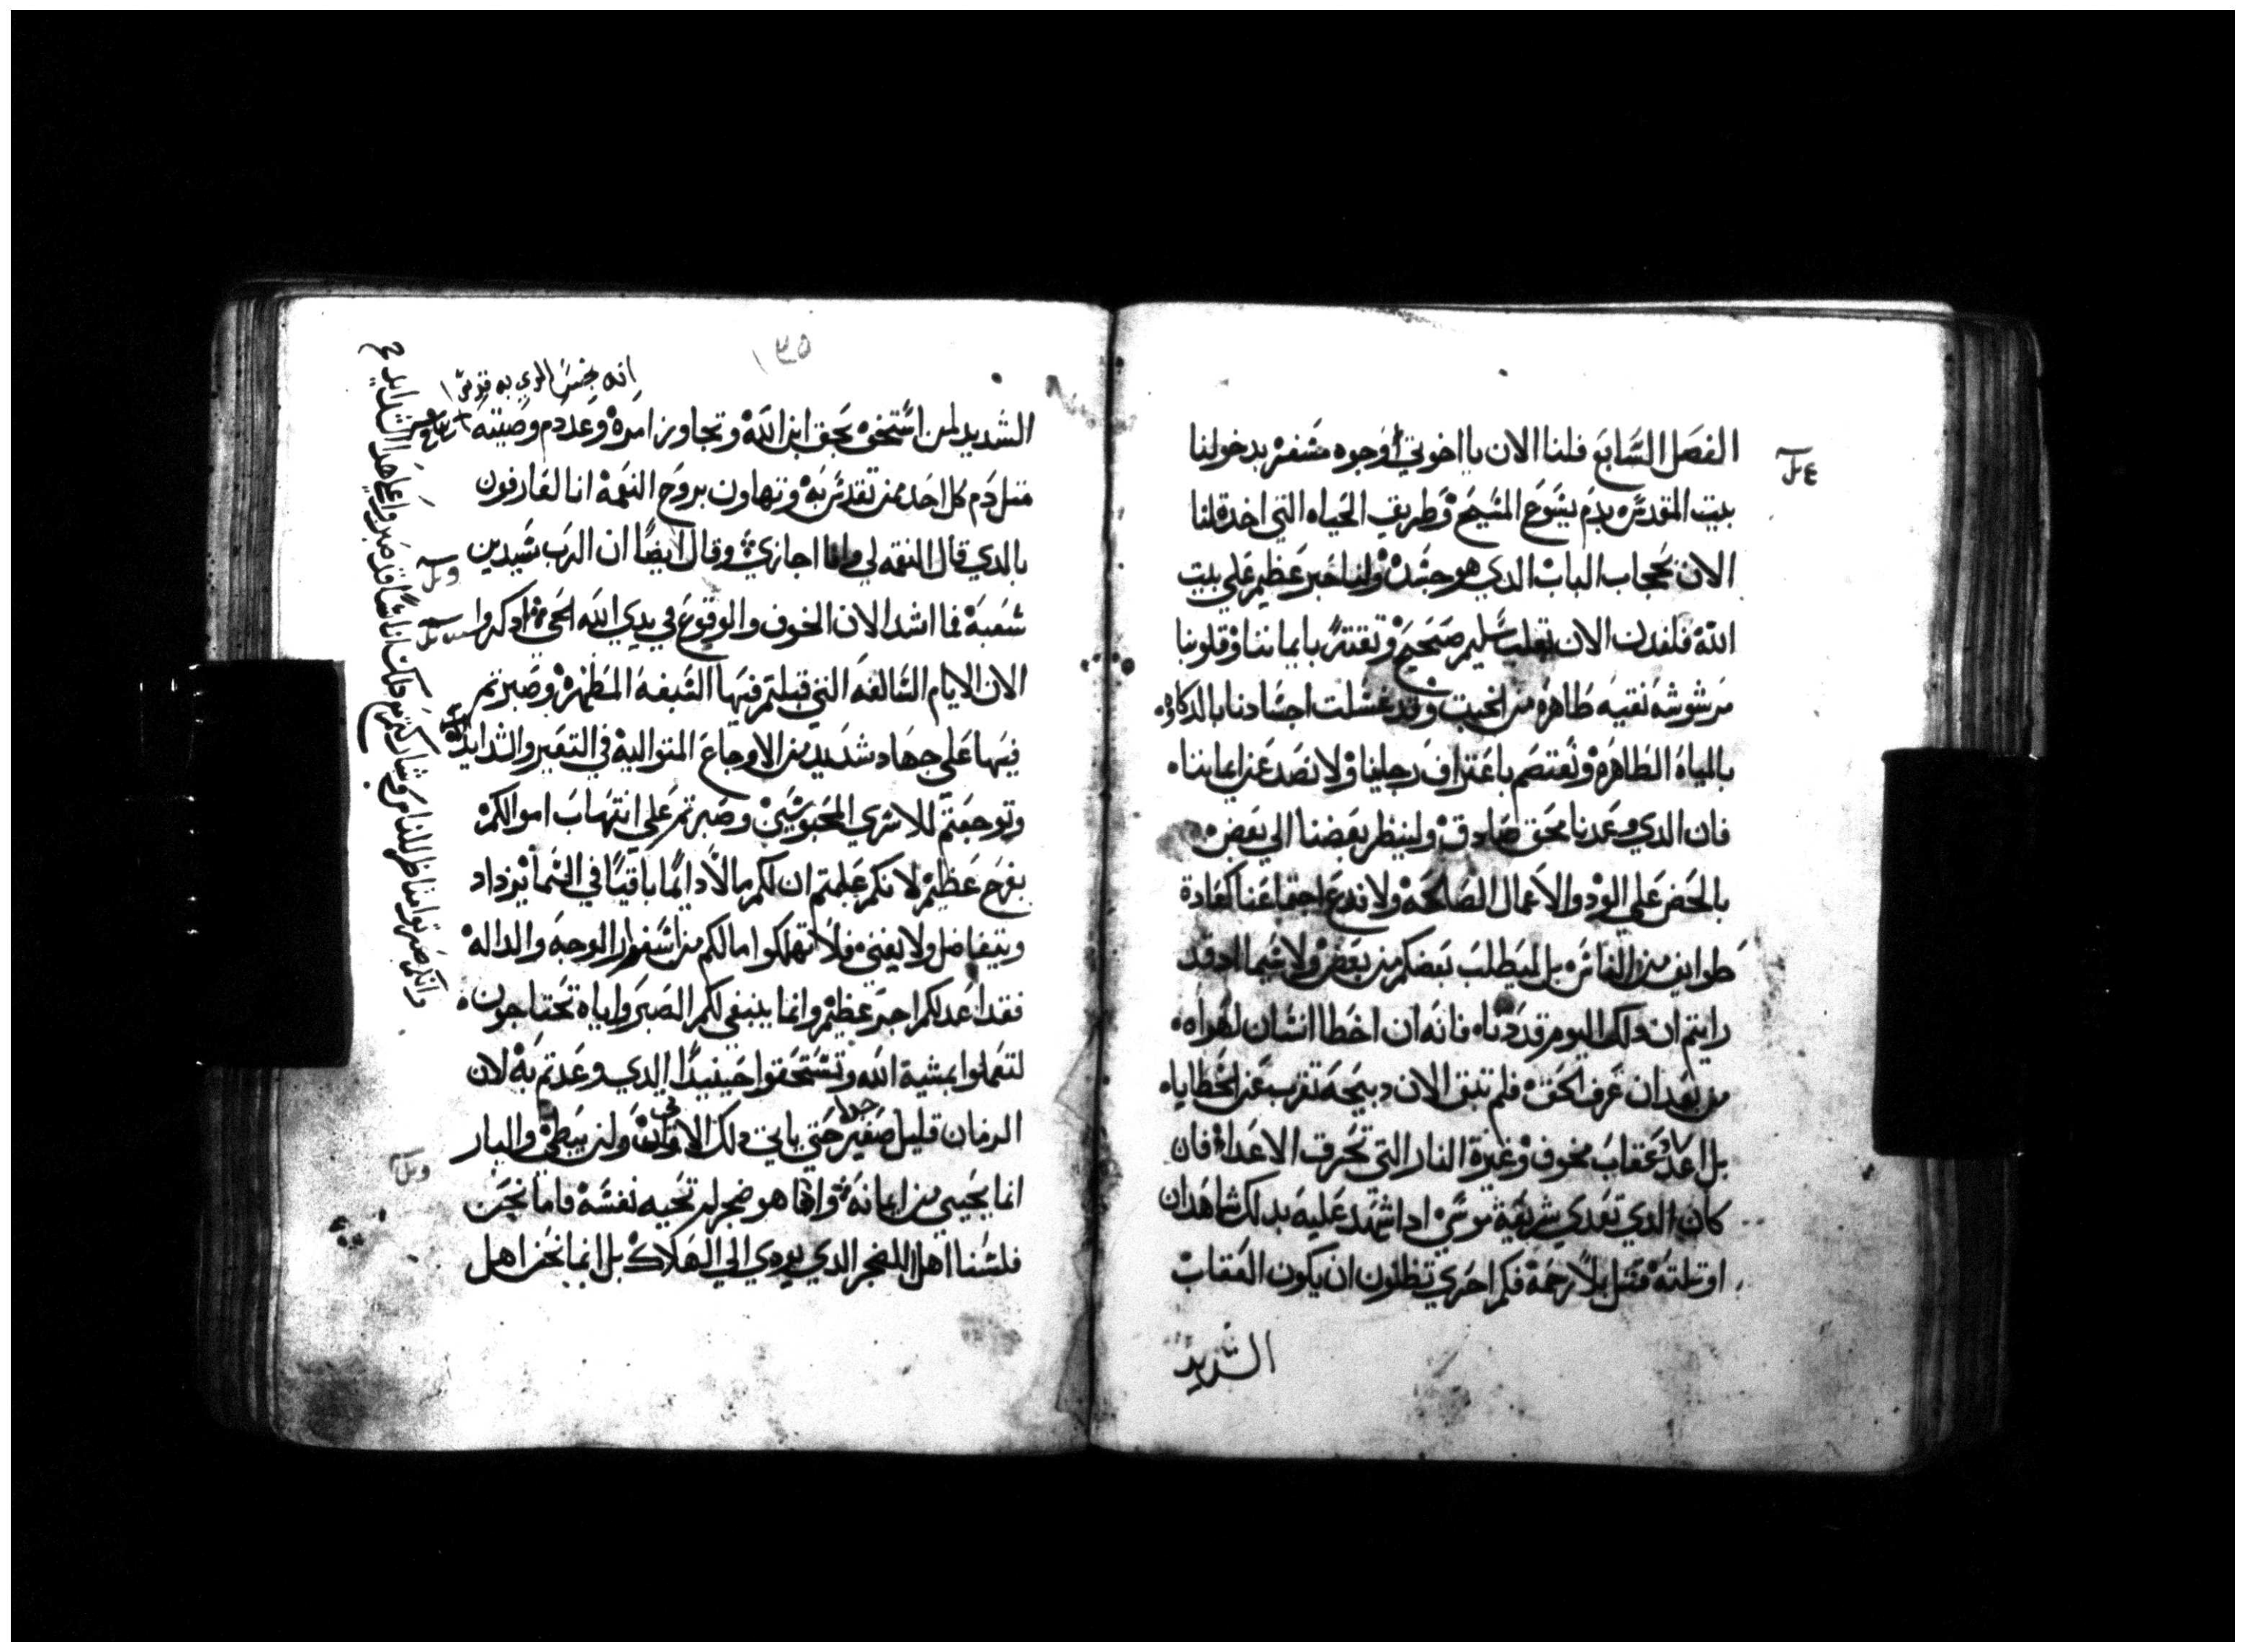 الفصل السابع فلنا الان يا اخوتي اوجوه مسفره بدخولنا
بيت المقدس بدم يسوع المسيح وطريق الحياه التي اخدة لنا
الان بحجاب الباب الدي هو جسده ولنا حبر عظيم علي بيت
الله فلندن الان بقلب سليم صحيح وتقتنا بايماننا وقلوبنا
مرشوشه نقيه طاهره من الخبث وقد غسلت اجسادنا بالدكاوه
بالمياه الطاهره ونعتصم باعتراف رجاينا ولا نصد عن ايماننا
فان الدي وعدنا محق صادق ولينظر بعضنا الي بعض
بالحض علي الود والاعمال الصالحه ولا ندع اجتماعنا كعادة
طوايف من الناس بل ليطلب بعضكم من بعض ولا سيما اد قد
رايتم ان دلك اليوم قد دنا فانه ان اخطا انسان لهواه
من بعد ان عرف الحق فلم تبق الان دبيحه تقرب عن الخطاياه
بل اعد عقاب مخوف وغيرة النار التي تحرق الاعدا فان
كان الدي تعدي شريعة موسي ادا شهد عليه بدلك شاهدان
او تلته قتل بلا رحمة فكم احري تظنون ان يكون العقاب
الشديد
١٣٥
انه بجنس الدي به قوتي
الشديد لمن استخف بحق ابن الله وتجاوز امره وعد دم وصيته
مثل دم كل احد ممن تقدس به وتهاون بروح النعمة انا لعارفون
بالدي قال النقمه لي وانا اجازي وقال ايضا ان الرب سيدين
شعبه فما اشد الان الخوف والوقوع في يدي الله الحي فادكروا
الان الايام السالفه التي قبلتم فيها الصبغه المطهره وصبرتم
فيها علي جهاد شديد من الاوجاع المتواليه في التعير والشدايد
وتوجعتم للاسري المحبوسين وصبرتم علي انتهاب اموالكم
بفرح عظيم لانكم علمتم ان لكم مالا دايما باقيا في السما يزداد
ويتفاضل ولا يفني فلا تهلكوا ما لكم من اسفرار الوجه والداله
فقد اعد لكم اجر عظيم وانما ينبغي لكم الصبر واياه تحتاجون
لتعملوا بمشية الله وتستحقوا حينيدا الدي وعدتم به لان
الزمان قليل صغير جدا حتي ياتي دلك الاتي ولن يبطي والبار
انما يحيي من ايمانه وان هو ضجر لم تحبه نفسه فاما نحن
فلسنا اهل الضجر الدي يودي الي الهلاك بل انما نحن اهل